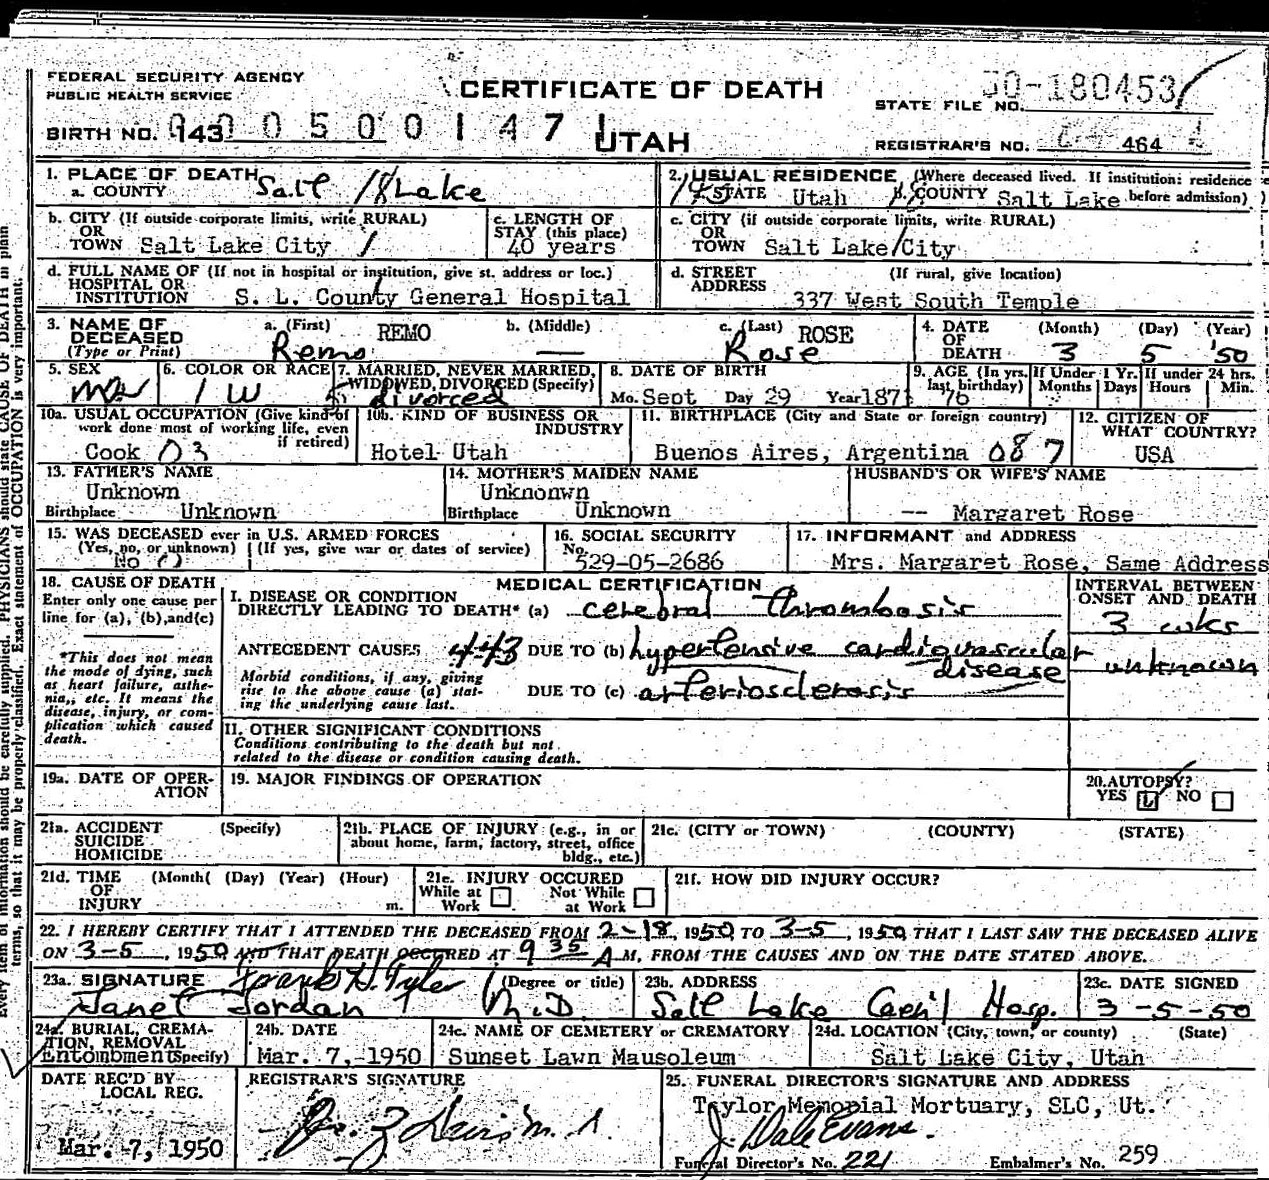 FEDERAL SECURITY AGENCY
PUBLIC HEALTH SERVICE
CERTIFICATE OF DEATH
UTAH
STATE FILE NO. 50-180453
BIRTH NO. 143
0 0 5 0 0 1 4 7 1
REGISTRAR'S NO. 464
1. PLACE OF DEATH
a. COUNTY Salt Lake
2. USUAL RESIDENCE (Where deceased lived. If institution: residence before admission)
STATE Utah COUNTY Salt Lake
b. CITY (If outside corporate limits, write RURAL)
OR
TOWN Salt Lake City
c. LENGTH OF
STAY (this place)
40 years
c. CITY (if outside corporate limits, write RURAL)
OR
TOWN Salt Lake City
d. FULL NAME OF (If not in hospital or institution, give st. address or loc.)
HOSPITAL OR
INSTITUTION S. L. County General Hospital
d. STREET (If rural, give location)
ADDRESS
337 West South Temple
3. NAME OF
DECEASED
(Type or Print)
a. (First) REMO
Remo
b. (Middle)
—
c. (Last) ROSE
Rose
4. DATE
OF
DEATH
(Month) (Day) (Year)
3 5 '50
5. SEX
6. COLOR OR RACE
W
7. MARRIED, NEVER MARRIED,
WIDOWED, DIVORCED (Specify)
divorced
8. DATE OF BIRTH
Mo. Sept Day 29 Year
9. AGE (In yrs.
last birthday)
76
If Under 1 Yr.
Months Days
If under 24 hrs.
Hours Min.
10a. USUAL OCCUPATION (Give kind of
work done most of working life, even
if retired)
Cook 03
10b. KIND OF BUSINESS OR
INDUSTRY
Hotel Utah
11. BIRTHPLACE (City and State or foreign country)
Buenos Aires, Argentina 087
12. CITIZEN OF
WHAT COUNTRY?
USA
13. FATHER'S NAME
Unknown
Birthplace Unknown
14. MOTHER'S MAIDEN NAME
Unknonwn
Birthplace Unknown
HUSBAND'S OR WIFE'S NAME
-- Margaret Rose
15. WAS DECEASED ever in U.S. ARMED FORCES
(Yes, no, or unknown) (If yes, give war or dates of service)
No
16. SOCIAL SECURITY
No.
529-05-2686
17. INFORMANT and ADDRESS
Mrs. Margaret Rose, Same Address
18. CAUSE OF DEATH
Enter only one cause per
line for (a), (b), and (c)
*This does not mean
the mode of dying, such
as heart failure, asthe-
nia,, etc. It means the
disease, injury, or com-
plication which caused
death.
MEDICAL CERTIFICATION
I. DISEASE OR CONDITION
DIRECTLY LEADING TO DEATH* (a) cerebral thrombosis
ANTECEDENT CAUSES 443 DUE TO (b) hypertensive cardiovascular
disease
Morbid conditions, if any, giving
rise to the above cause (a) stat-
ing the underlying cause last.
DUE TO (c) arteriosclerosis
INTERVAL BETWEEN
ONSET AND DEATH
3 wks
unknown
II. OTHER SIGNIFICANT CONDITIONS
Conditions contributing to the death but not
related to the disease or condition causing death.
19a. DATE OF OPER-
ATION
19. MAJOR FINDINGS OF OPERATION
20. AUTOPSY?
YES NO
21a. ACCIDENT (Specify)
SUICIDE
HOMICIDE
21b. PLACE OF INJURY (e.g., in or
about home, farm, factory, street, office
bldg., etc.)
21c. (CITY or TOWN) (COUNTY) (STATE)
21d. TIME (Month( (Day) (Year) (Hour)
OF
INJURY m.
21e. INJURY OCCURED
While at Work Not While at Work
21f. HOW DID INJURY OCCUR?
22. I HEREBY CERTIFY THAT I ATTENDED THE DECEASED FROM 2-18, 1950, TO 3-5, 1950, THAT I LAST SAW THE DECEASED ALIVE
ON 3-5, 1950 AND THAT DEATH OCCURED AT 9 35 A M, FROM THE CAUSES AND ON THE DATE STATED ABOVE.
23a. SIGNATURE Frank H. Tyler (Degree or title)
Janet Jordan M.D.
23b. ADDRESS
Salt Lake Gen'l Hosp.
23c. DATE SIGNED
3-5-50
24a. BURIAL, CREMA-
TION, REMOVAL
Entombment (Specify)
24b. DATE
Mar. 7, 1950
24c. NAME OF CEMETERY or CREMATORY
Sunset Lawn Mausoleum
24d. LOCATION (City, town, or county) (State)
Salt Lake City, Utah
DATE REC'D BY
LOCAL REG.
Mar. 7, 1950
REGISTRAR'S SIGNATURE
25. FUNERAL DIRECTOR'S SIGNATURE AND ADDRESS
Taylor Memorial Mortuary, SLC, Ut.
J. Dale Evans.
Funeral Director's No. 221 Embalmer's No. 259
Every item of information should be carefully supplied. PHYSICIANS should state CAUSE OF DEATH in plain
terms, so that it may be properly classified. Exact statement of OCCUPATION is very important.